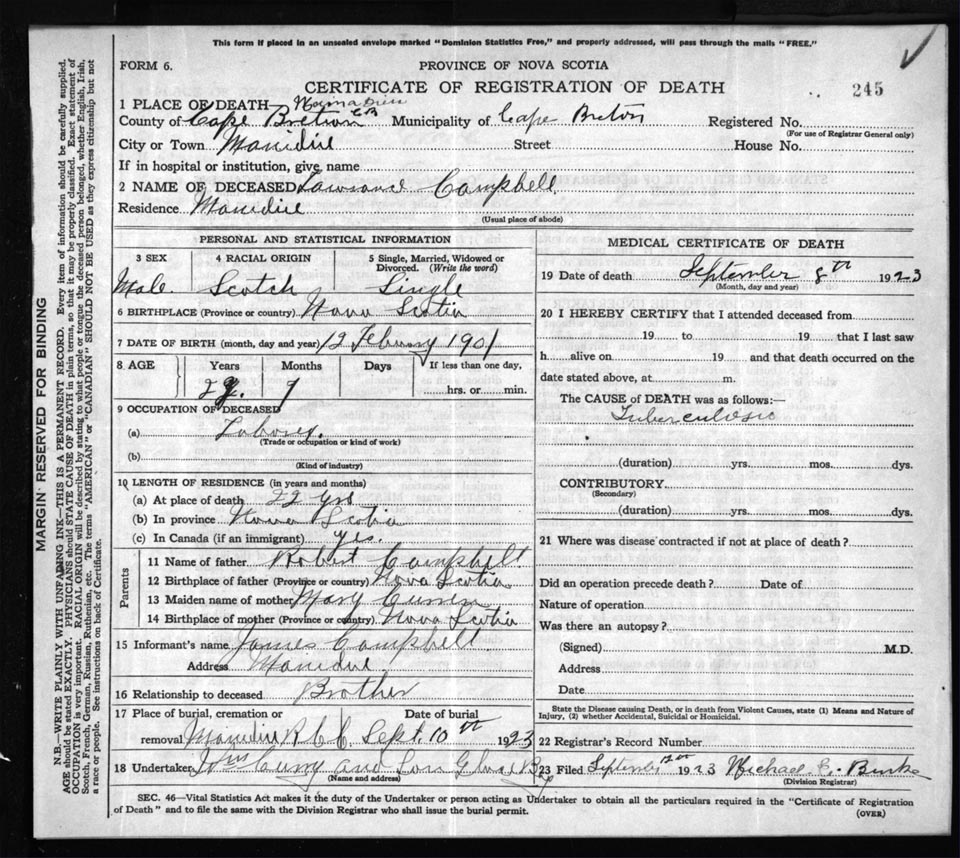 This form if placed in an unsealed envelope marked "Dominion Statistics Free," and properly addressed, will pass through the mails "FREE."
FORM 6.
PROVINCE OF NOVA SCOTIA
CERTIFICATE OF REGISTRATION OF DEATH
245
1 PLACE OF DEATH
County of Cape Breton CB Municipality of Cape Breton Registered No.
(For use of Registrar General only)
City or Town Street House No.
If in hospital or institution, give name
2 NAME OF DECEASED Campbell
Residence
(Usual place of abode)
PERSONAL AND STATISTICAL INFORMATION
3 SEX 4 RACIAL ORIGIN 5 Single, Married, Widowed or Divorced. (Write the word)
Male Scotch Single
6 BIRTHPLACE (Province or country) Nova Scotia
7 DATE OF BIRTH (month, day and year) 12 February 1901
8 AGE Years Months Days If less than one day,
7 hrs. or min.
9 OCCUPATION OF DECEASED
(a) Laborer.
(Trade or occupation or kind of work)
(b)
(Kind of industry)
10 LENGTH OF RESIDENCE (in years and months)
(a) At place of death 22 yrs
(b) In province Nova Scotia
(c) In Canada (if an immigrant) yes.
Parents
11 Name of father Robert Campbell
12 Birthplace of father (Province or country) Nova Scotia
13 Maiden name of mother Mary
14 Birthplace of mother (Province or country) Nova Scotia
15 Informant's name James Campbell
Address
16 Relationship to deceased Brother
17 Place of burial, cremation or removal Date of burial
Sept. 10th 1923
18 Undertaker and Son Glace Bay
(Name and address)
MEDICAL CERTIFICATE OF DEATH
19 Date of death September 8th 1923
(Month, day and year)
20 I HEREBY CERTIFY that I attended deceased from
19 to 19 that I last saw
h alive on 19 and that death occurred on the
date stated above, at m.
The CAUSE of DEATH was as follows:—
Tuberculosis
(duration) yrs. mos. dys.
CONTRIBUTORY
(Secondary)
(duration) yrs. mos. dys.
21 Where was disease contracted if not at place of death?
Did an operation precede death? Date of
Nature of operation
Was there an autopsy?
(Signed) M.D.
Address
Date
State the Disease causing Death, or in death from Violent Causes, state (1) Means and Nature of
Injury, (2) whether Accidental, Suicidal or Homicidal.
22 Registrar's Record Number
23 Filed September 12th 1923 Michael Burke
(Division Registrar)
SEC. 46—Vital Statistics Act makes it the duty of the Undertaker or person acting as Undertaker to obtain all the particulars required in the "Certificate of Registration
of Death" and to file the same with the Division Registrar who shall issue the burial permit.
(OVER)
MARGIN RESERVED FOR BINDING
N.B.—WRITE PLAINLY WITH UNFADING INK—THIS IS A PERMANENT RECORD. Every item of information should be carefully supplied.
AGE should be stated EXACTLY. PHYSICIANS should STATE CAUSE OF DEATH in plain terms, so that it may be properly classified. Exact statement of
OCCUPATION is very important. RACIAL ORIGIN will be described by stating to what people or tongue the deceased person belonged, whether English, Irish,
Scotch, French, German, Russian, Ruthenian, etc. The terms "AMERICAN" or "CANADIAN" SHOULD NOT BE USED as they express citizenship but not
a race or people. See instructions on back of Certificate.